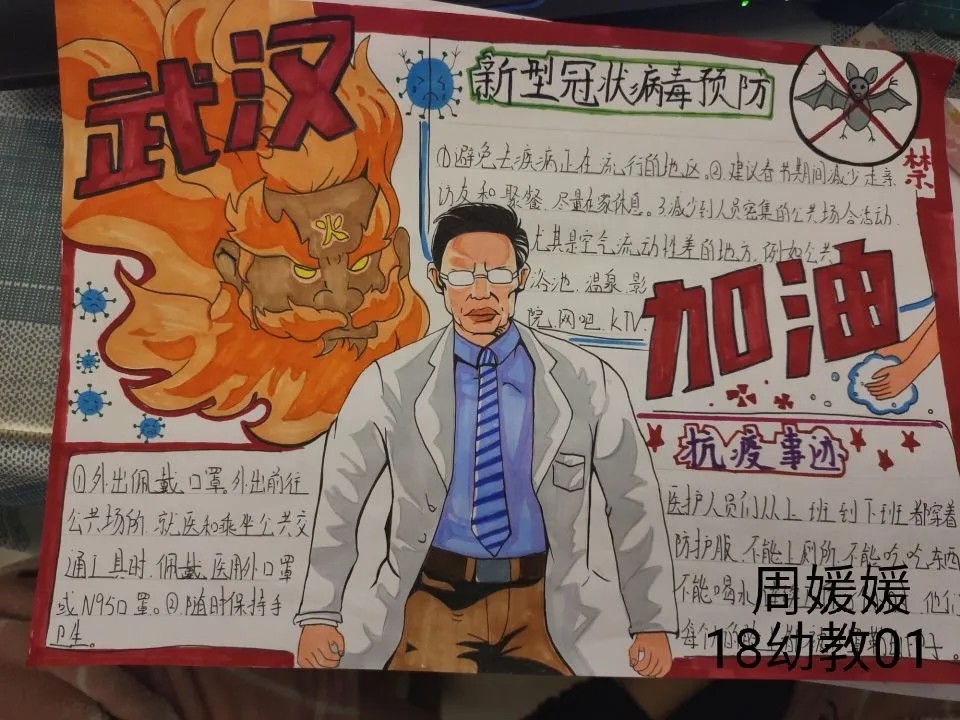 武汉
新型冠状病毒预防
火
禁
①避免去疾病正在流行的地区。②建议春节期间减少走亲
访友和聚餐,尽量在家休息。3.减少到人员密集的公共场合活动,
尤其是空气流动性差的地方,例如公共
浴池,温泉,影
院,网吧,KTV.
加油
抗疫事迹
①外出佩戴口罩。外出前往
公共场所,就医和乘坐公共交
通工具时,佩戴医用外口罩
或N95口罩。②随时保持手
卫生。
医护人员们从上班到下班都穿着
防护服,不能上厕所,不能吃东西
不能喝水 他们
每个
周媛媛
18幼教01